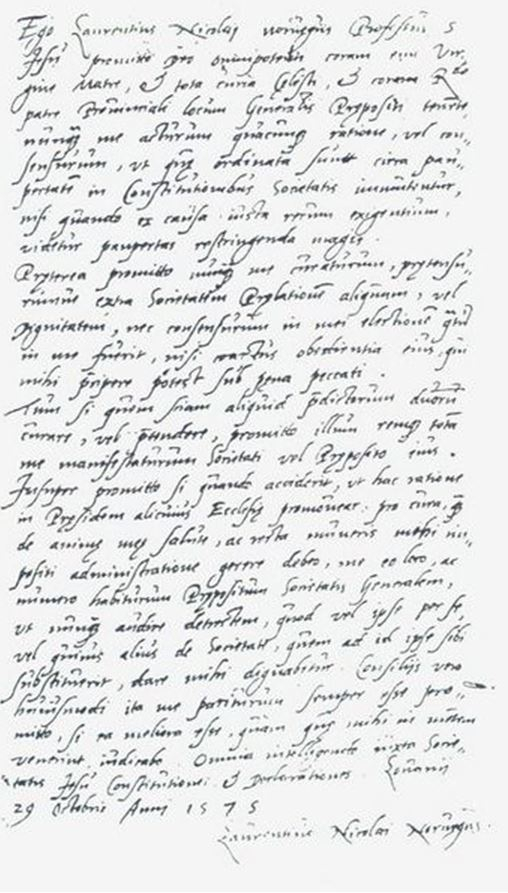 Ego Laurentius Nicolai noruegus Professus S
Jesu promitto pro omnipotenti coram eius Vir-
gine Matre, & tota curia Cęlesti, & coram R.do
patre Prouinciali locum Generalis Prępositi tenente
nunq̃ me acturum quacunq̃ ratione, vel con-
sensurum, ut quę ordinata sunt circa pau-
pertatẽ in Constitutionibus Societatis immutentur,
nisi quando ex causa iusta rerum exigentium,
videretur paupertas restringenda magis.
Pręterea promitto nunq̃ me curaturum, prętensu-
rumue extra Societatem Pręlationẽ aliquam, vel
dignitatem, nec consensurum in mei electionẽ q̃tũ
in me fuerit, nisi coactus obedientia eius, qui
mihi p̃cipere potest sub pena peccati.
Tum si quem sciam aliquid p̃dictorum duorũ
curare, vel p̃tendere, promitto illum remq̃ totã
me manifestaturum Societati vel Pręposito eius.
Insuper promitto si quando acciderit, ut hac ratione
in Pręsidem alicuius Ecclesię promouear: pro cura, q̃
de animę meę salute, ac recta muneris mihi im-
positi administratione gerere debeo, me eo loco, ac
numero habiturum Prępositum Societatis Generalem,
ut nunq̃ audire detrectem, quod vel ipse per se,
vel quiuis alius de Societate, quem ad id ipse sibi
substituerit, dare mihi dignabitur. Consilijs vero
huiusmodi ita me pariturum semper esse pro-
mitto, si ea meliora esse, quam quę mihi in mentem
venerint, indicabo. Omnia intelligendo iuxta Socie-
tatis Jesu Constitutiones & Declarationes. Louanij
29 Octobris Anni 1575
Laurentius Nicolai Noruegus.